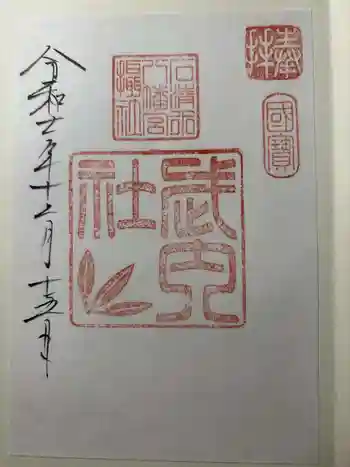 奉拝
國寶
石清水
八幡宮
攝社
武内
社
令和七年十二月十五日